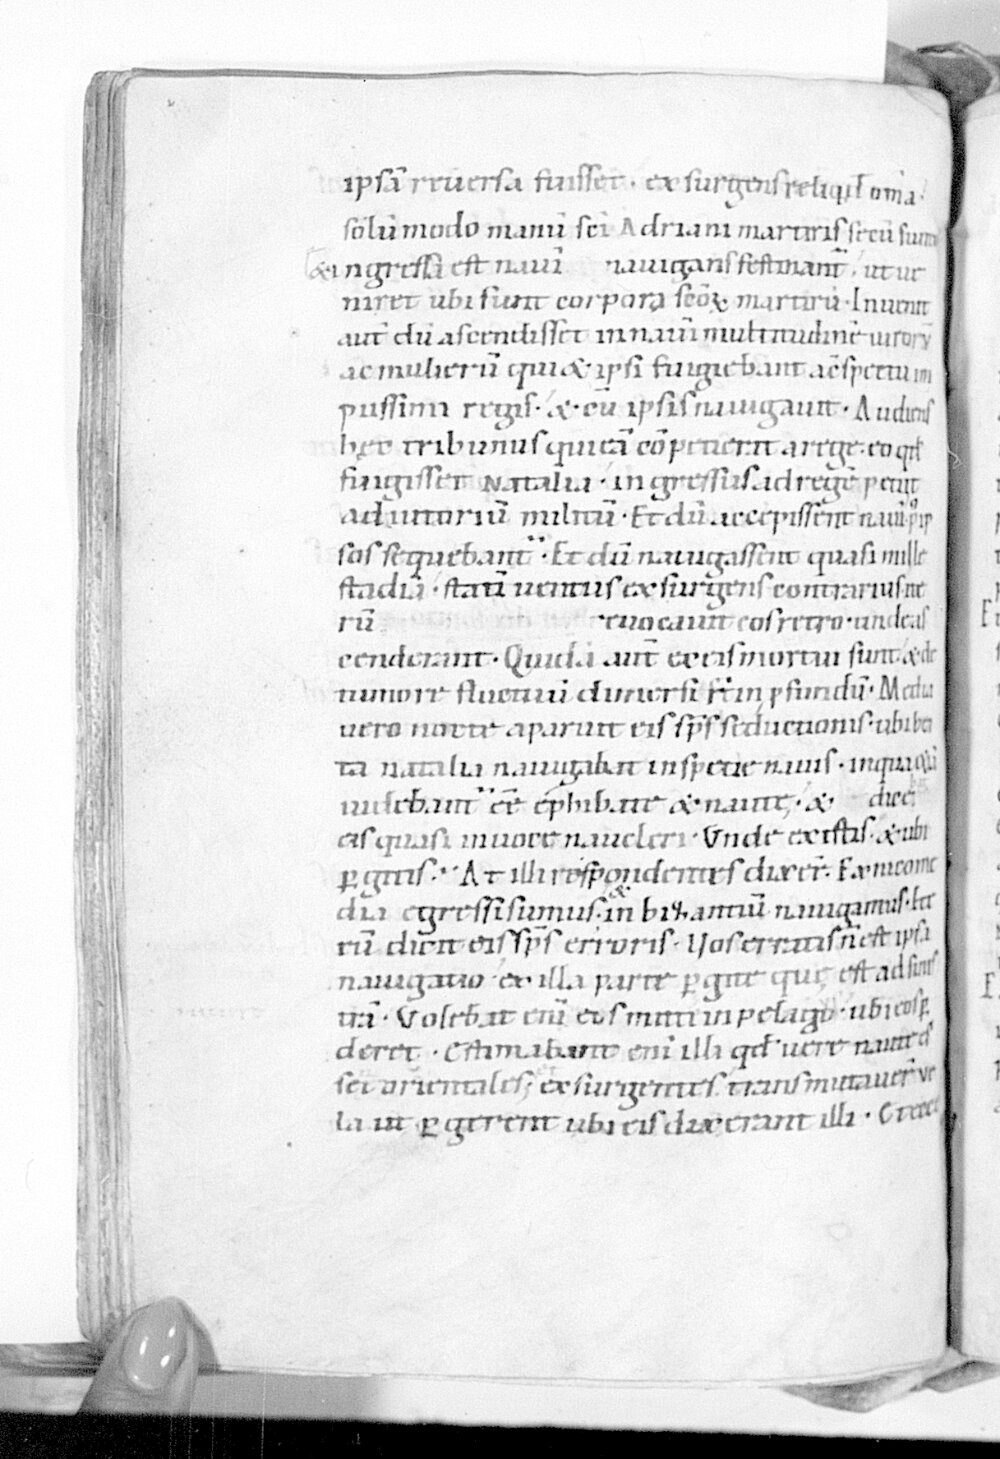 ipsā reuersa fuisset · exsurgens reliqͥt om̄ia ·
solūmodo manū sc̄i Adriani martiris secū sumēs
& ingressa est nauī nauigans festinant̄ · ut ue
niret ubi sunt corpora sc̄oꝝ martirū · Inuenit
aut̄ dū ascendisset in nauī multitudinē uirorū
ac mulierū qui & ipsi fugiebant ac̄spectu im
pussimi regis · & cū ipsis nauigauit · Audiens
hec tribunus qui eā cōpetierat a rege · eo qd̄
fugisset Natalia · ingressus ad regē petiit
adiutoriū militū · Et dū accepissent nauī ꝑ ip
sos sequebant̄ · Et dū nauigassent quasi mille
stadia · statī uentus exsurgens contrarius ite
rū reuocauit eos retro · unde as
cenderant · Quidā aut̄ ex eis mortui sunt · & de
timore fluctuū dimersi st̄ in ꝓfundū · Media
uero nocte aparuit eis sp̄s seductionis · ubi bea
ta natalia nauigabat in specie nauis · in qua
uidebant̄ eē ephibate & naute · & dicē
eis quasi in uoce naucleri · Vnde ex istis · & ubi
ꝑgitis · At illi respondentes dixer̄ · Ex nicome
dia egressi sumus · & in bizantiū nauigamus · Ite
rū dicit eis sp̄s erroris · Uos erratis n̄ est ipsa
nauigatio · ex illa parte ꝑgite que est ad sinis
trā · Volebat enī eos mitti in pelago · ubi eos ꝑ
deret · Estimabant enī illi qd̄ uere naute
sci orientales · et exsurgentes transmutauer̄ ue
la ut ꝑgerent ubi eis dixerant illi ·